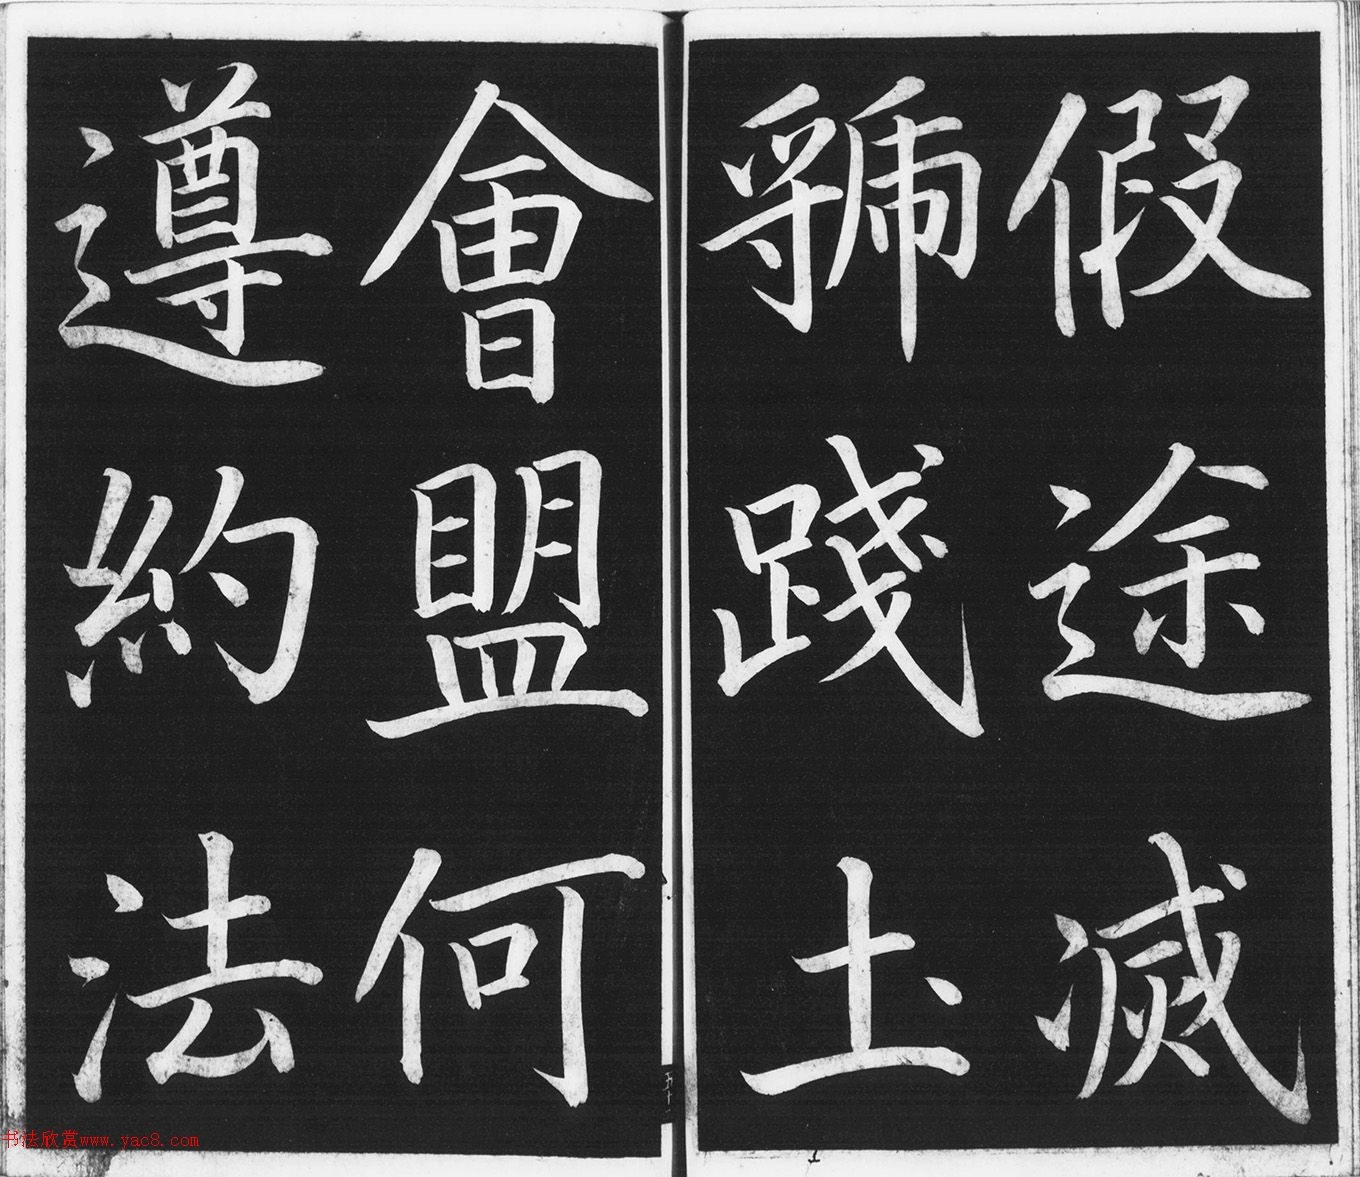 假途滅
虢踐土
會盟何
遵約法
五十二
书法欣赏www.yac8.com